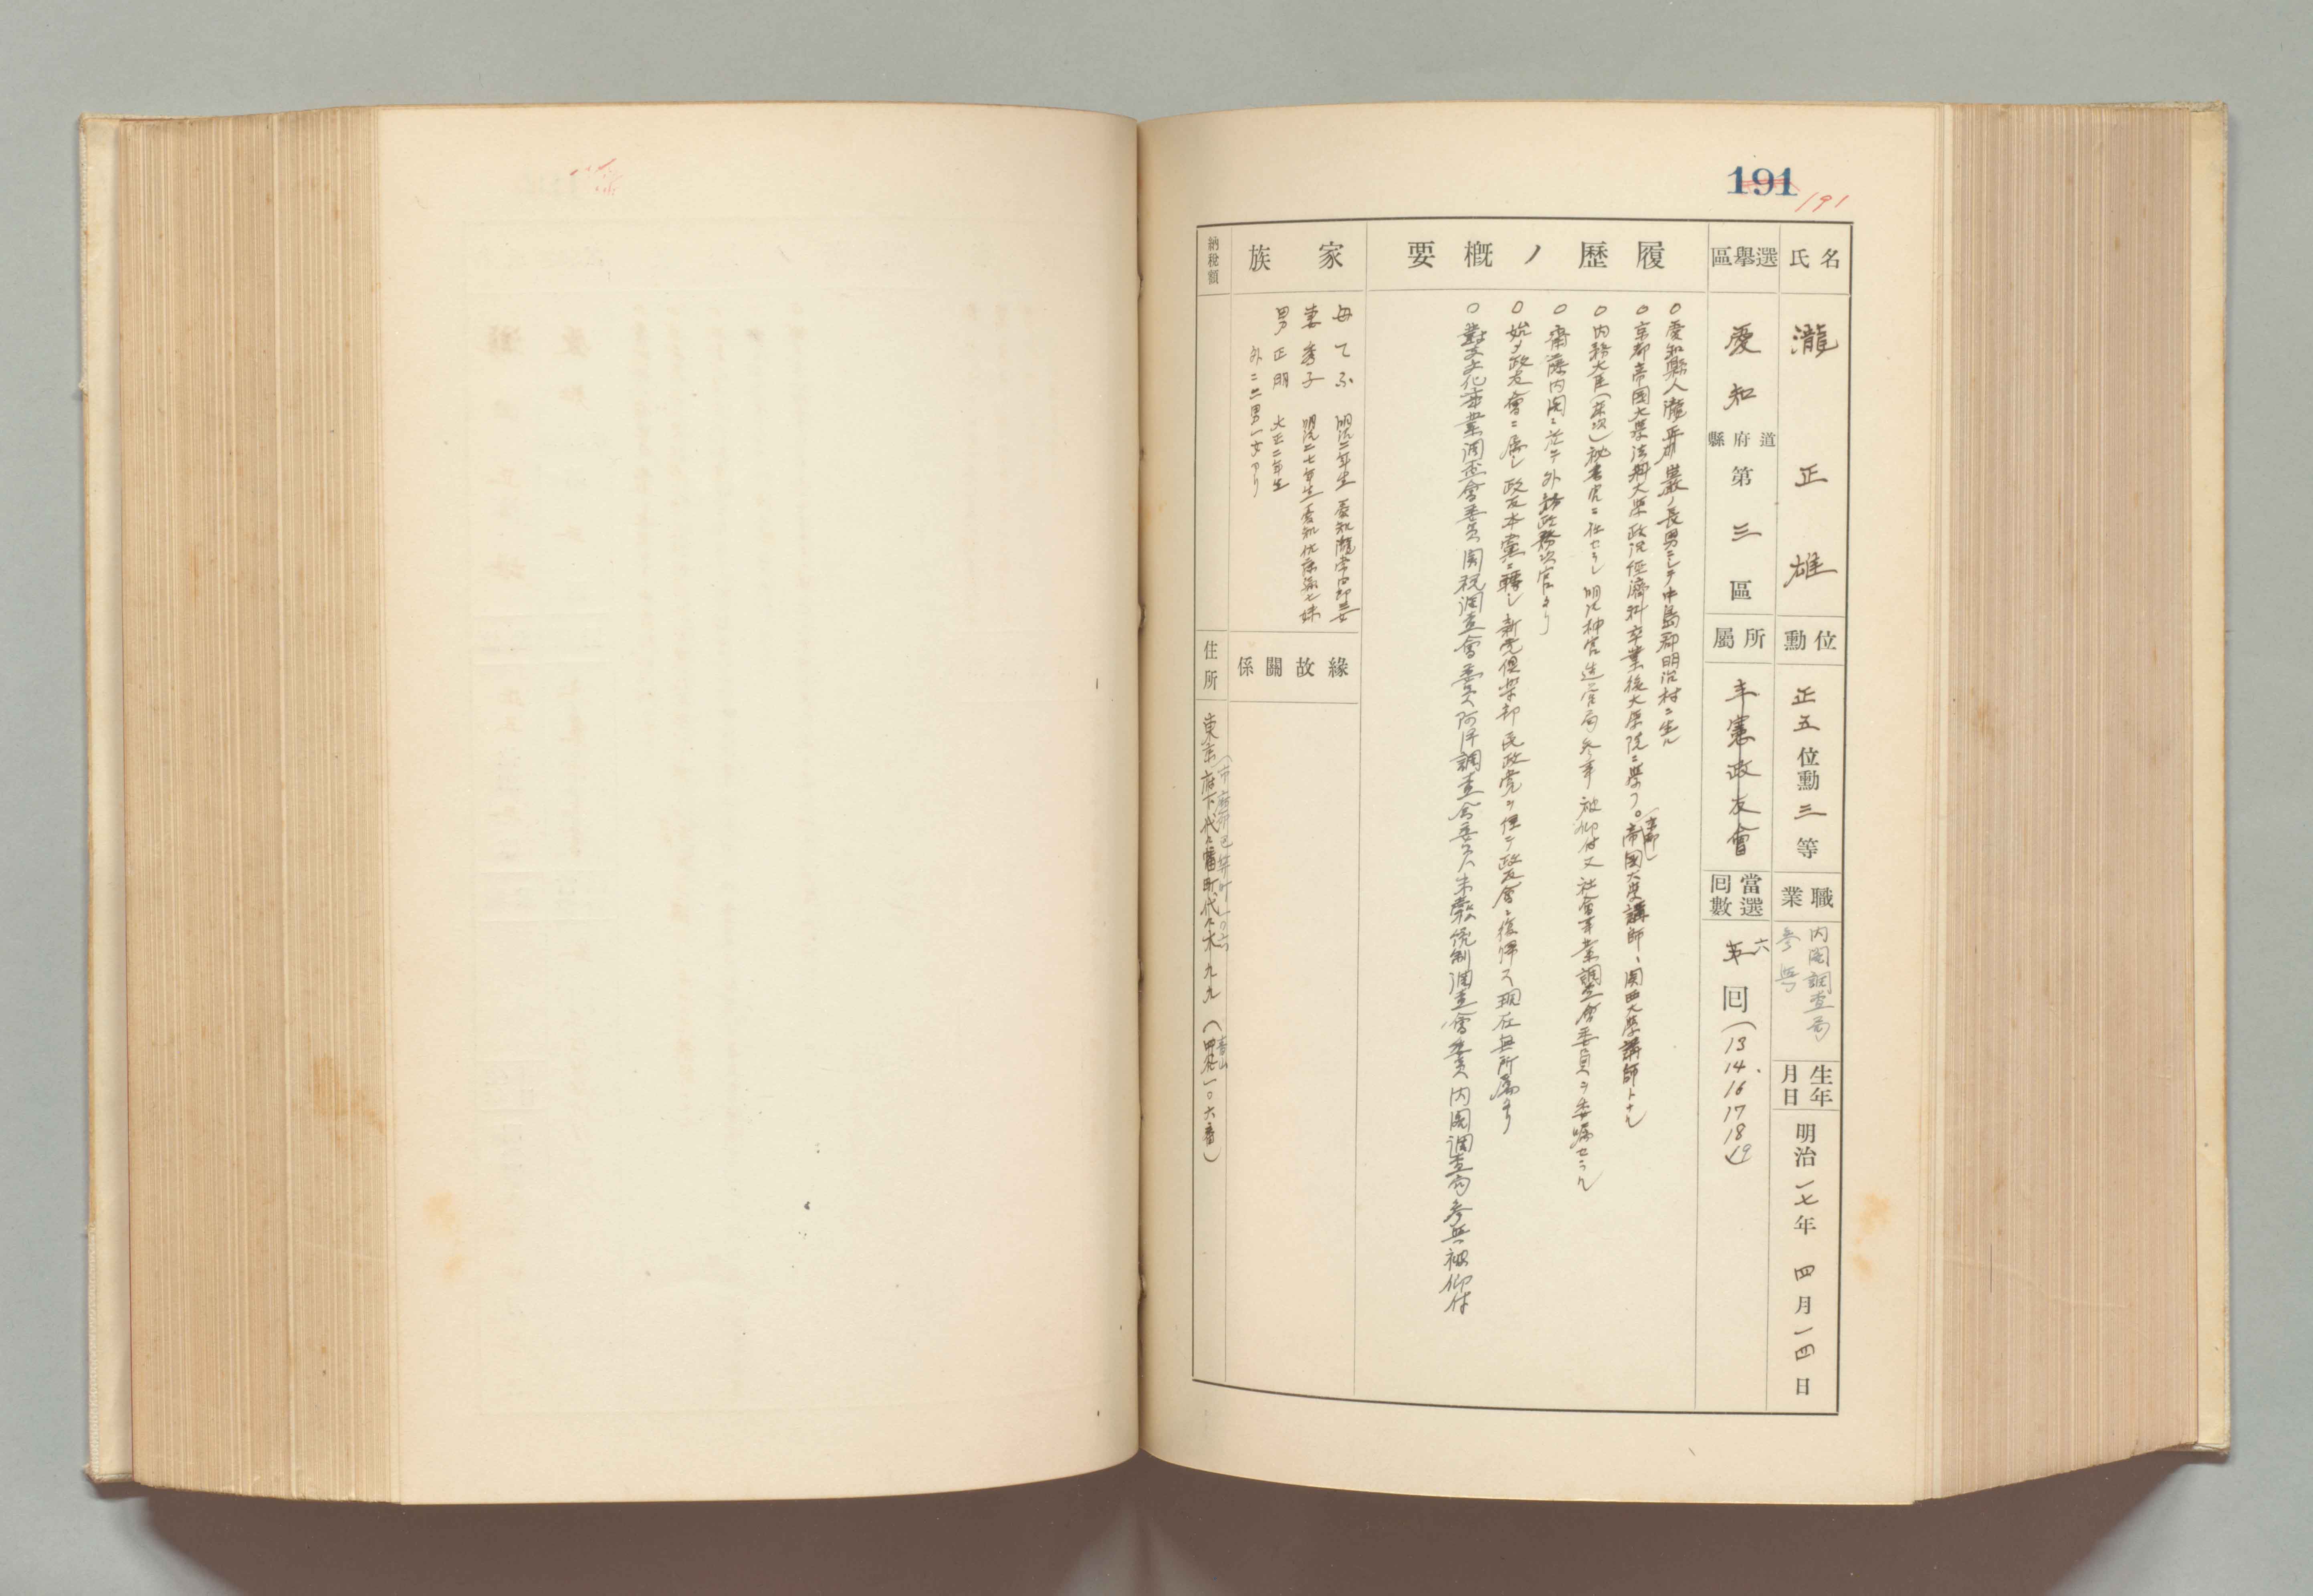 191
191
氏名
瀧正雄
位勳
正五位勳三等
職業
内閣調査局
參與
生年月日
明治一七年四月一四日
選擧區
愛知
道府縣
第三區
所屬
立憲政友會
當選回數
六
回(13 14 16 17 18 19
履歷ノ槪要
○愛知縣人瀧ノ長男ニシテ中島郡明治村ニ生ル
○京都帝国大學法科大學政治経濟科卒業後大學院ニ學フ。帝國大學講師、関西大學講師トナル
(京都)
○内務大臣(床次)秘書官ニ任セラレ明治神宮造営局参事被仰付又社會事業調査會委員ヲ委嘱セラル
○齋藤内閣ニ於テ外務政務次官タリ
○始メ政友會ニ属シ政友本黨ニ轉シ新党倶楽部民政党ヲ経テ政友會ニ復帰ス現在無所属タリ
○對支文化事業調査會委員関税調査會委員阿片調査会委員米穀統制調査會委員内閣調査局参與被仰付
家族
母てふ 明治二年生 愛知瀧三女
妻秀子 明治二七年生 愛知妹
男正明 大正二年生
外ニ二男一女アリ
緣故關係
納稅額
住所
東京府下代々幡町代々木九九(一〇六番)
青山